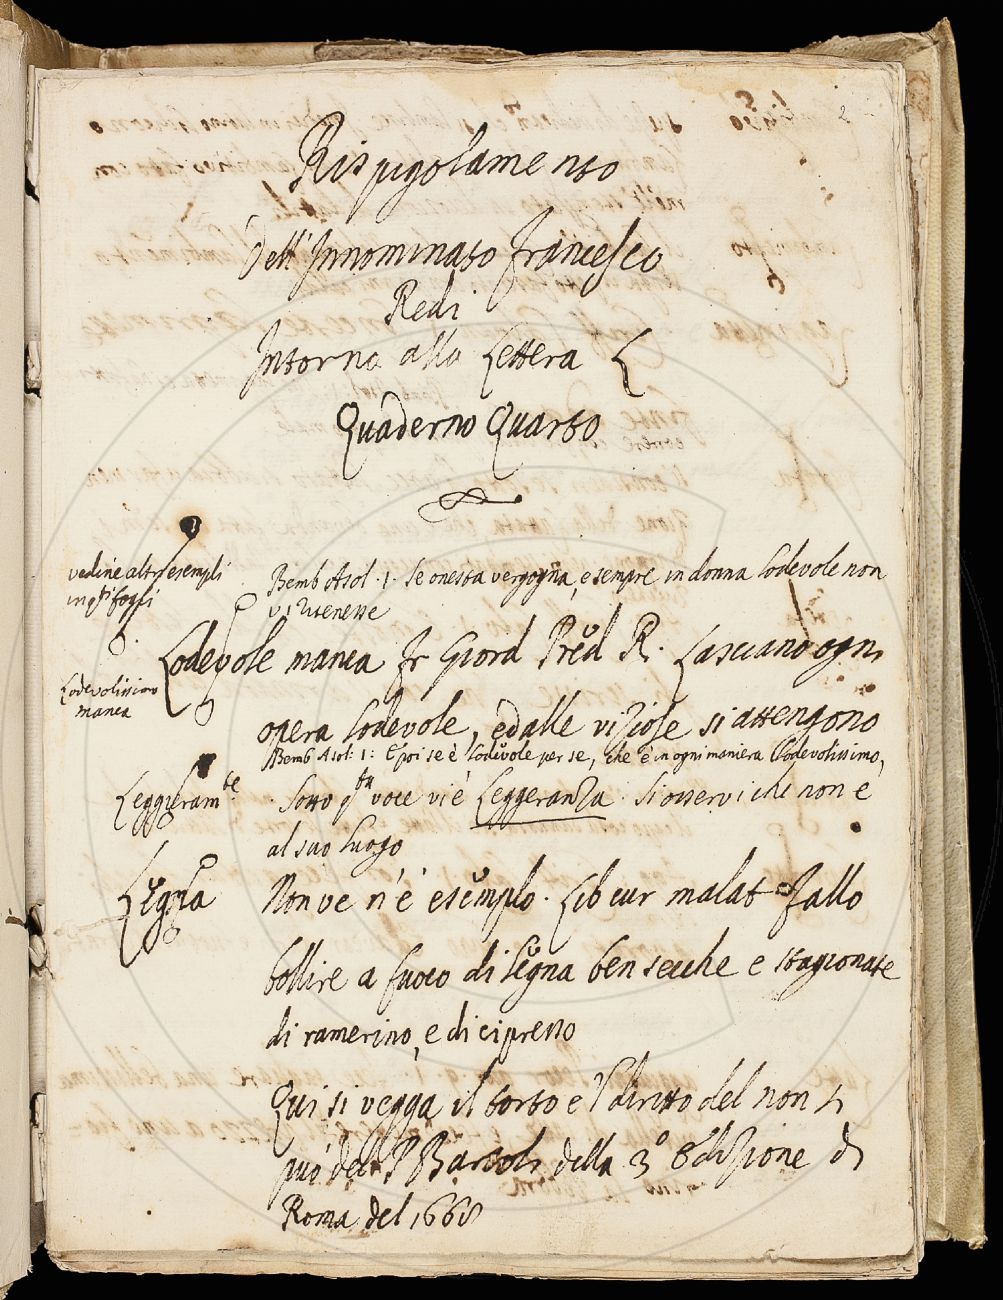 2
Rispigolamento
dell'Innominato Francesco
Redi
Intorno alla Lettera L
Quaderno Quarto
vedine altri esempli
in q.ti fogli
Bemb Asol. 1. Se onesta vergogna, e sempre in donna lodevole non
vi ritenesse
Lodevole manca Fr Giord Pred R. Lasciano ogni
Lodevolissimo
manca
opera lodevole, ed alle viziose si attengono
Bemb Asol: 1: E poi se è lodevole per se, che è in ogni maniera lodevolissimo,
Leggieram.te
. Sotto q.ta voce vi è Leggeranza. Si osservi che non e
al suo luogo
Legna
Non ve n'è esemplo. Lib cur malat Fallo
bollire a fuoco di legna ben secche e stagionate
di ramerino, e di cipresso
Qui si vegga il torto e 'l diritto del non si
può del P Bartoli della 3.o Edizione di
Roma del 1668